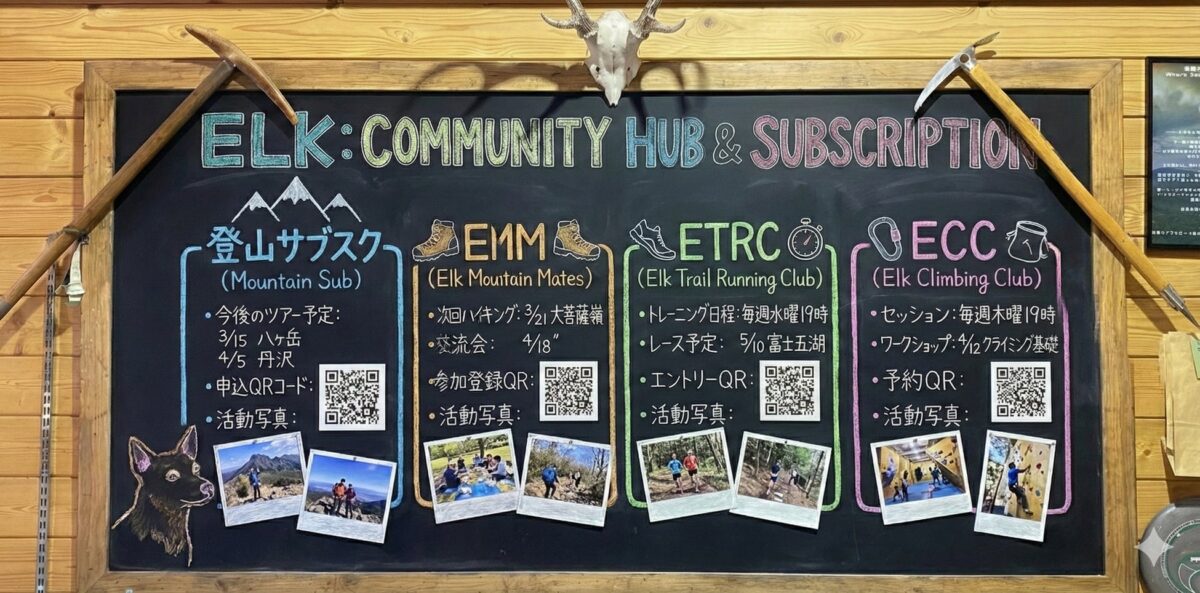 ELK: COMMUNITY HUB & SUBSCRIPTION
登山サブスク
(Mountain Sub)
・今後のツアー予定:
3/15 八ヶ岳
4/5 丹沢
・申込QRコード:
・活動写真:
EMM
(Elk Mountain Mates)
・次回ハイキング: 3/21 大菩薩嶺
・交流会: 4/18"
・参加登録QR:
・活動写真:
ETRC
(Elk Trail Running Club)
・トレーニング日程: 毎週水曜19時
・レース予定: 5/10 富士五湖
・エントリーQR:
・活動写真:
ECC
(Elk Climbing Club)
・セッション: 毎週木曜19時
・ワークショップ: 4/12 クライミング基礎
・予約QR:
・活動写真: